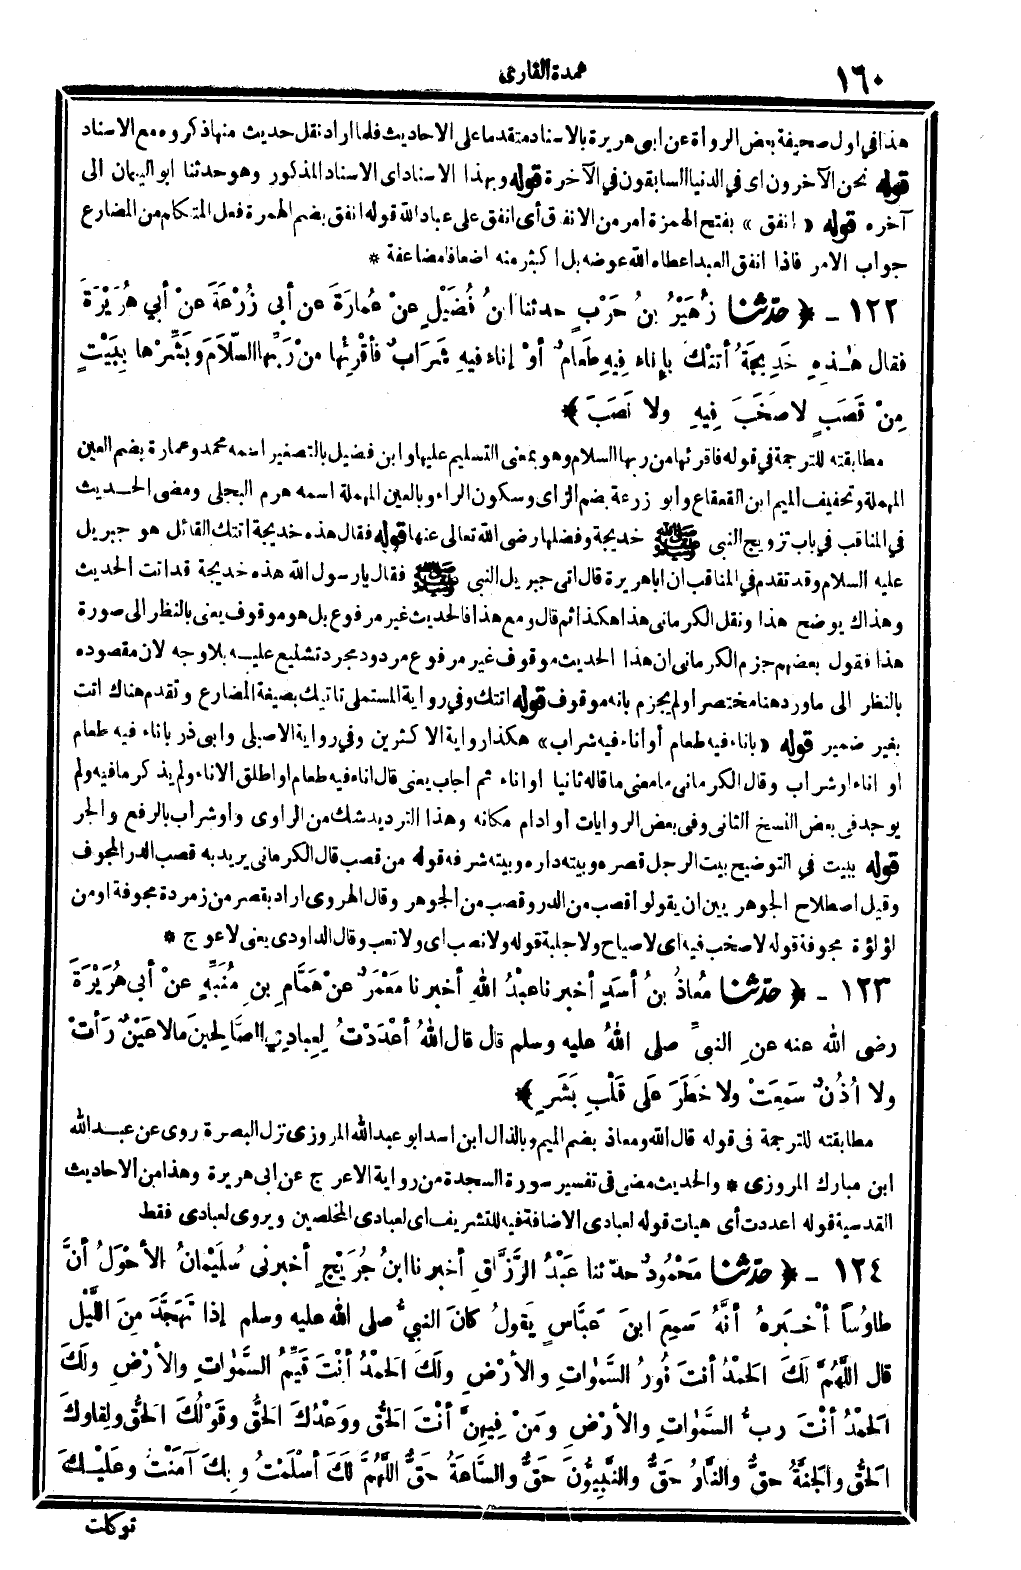 ١٦٠
عمدة القارى
هذا في اول صحيفة بعض الرواة عن ابى هريرة بالاسناد متقدما على الاحاديث فلما اراد نقل حديث منها ذكروه مع الاسناد
قوله نحن الآخرون اى في الدنيا السابقون في الآخرة قوله وبهذا الاسناد اى الاسناد المذكور وهو حدثنا ابو اليمان الى
آخره قوله « انفق » بفتح الهمزة امر من الانفاق أى انفق على عباد الله قوله انفق بضم الهمزة فعل المتكلم من المضارع
جواب الامر فاذا انفق العبد اعطاه الله عوضه بل اكثر منه اضعافا مضاعفة *
١٢٢ - ﴿ حدّثنا زُهَيْرُ بنُ حَرْبٍ حدثنا ابنُ فُضَيْلٍ عنْ عُمارَةَ عن أبى زُرْعَةَ عنْ أبي هُرَيْرَةَ
فقال هٰذِهِ خَدِيجَةُ أتتْكَ بإناء فِيهِ طَعامٌ أوْ إناء فيهِ شَرَابٌ فأقْرِئْها منْ رَبِّها السَّلاَمَ وبَشِّرْها بِبَيْتٍ
مِنْ قَصَبٍ لاصَخَبَ فِيهِ ولا نَصَبَ ﴾
مطابقته للترجمة في قوله فاقرئها من ربها السلام وهو بمعنى التسليم عليها وابن فضيل بالتصغير اسمه محمد وعمارة بضم العين
المهملة وتخفيف الميم ابن القعقاع وابو زرعة بضم الزاى وسكون الراء وبالعين المهملة اسمه هرم البجلى ومضى الحديث
في المناقب في باب تزويج النبى ﷺ خديجة وفضلها رضى الله تعالى عنها قوله فقال هذه خديجة اتتك القائل هو جبريل
عليه السلام وقد تقدم في المناقب ان اباهريرة قال اتى جبريل النبى ﷺ فقال يارسول الله هذه خديجة قد اتت الحديث
وهذاك يوضح هذا ونقل الكرمانى هذا هكذا ثم قال ومع هذا فالحديث غير مرفوع بل هو موقوف يعنى بالنظر الى صورة
هذا فقول بعضهم جزم الكرمانى ان هذا الحديث موقوف غير مرفوع مردود مجرد تشنيع عليه بلاوجه لان مقصوده
بالنظر الى ماورد هنا مختصرا ولم يجزم بانه موقوف قوله اتتك وفي رواية المستملى تاتيك بصيغة المضارع وتقدم هناك اتت
بغير ضمير قوله « باناء فيه طعام أواناء فيه شراب » هكذا رواية الاكثرين وفي رواية الاصيلى وابى ذر باناء فيه طعام
او اناء او شراب وقال الكرمانى مامعنى ماقاله ثانيا اواناء ثم اجاب يعنى قال اناء فيه طعام او اطلق الاناء ولم يذكر مافيه ولم
يوجد فى بعض النسخ الثانى وفى بعض الروايات أو ادام مكانه وهذا الترديد شك من الراوى واو شراب بالرفع والجر
قوله ببيت في التوضيح بيت الرجل قصره وبيته داره وبيته شرفه قوله من قصب قال الكرمانى يريد به قصب الدر المجوف
وقيل اصطلاح الجوهريين ان يقولوا قصب من الدر وقصب من الجوهر وقال الهروى اراد بقصر من زمردة مجوفة اومن
لؤلؤة مجوفة قوله لاصخب فيه اى لاصياح ولاجلبة قوله ولا نصب اى ولا تعب وقال الداودى يعنى لاعوج *
١٢٣ - ﴿ حدّثنا مُعاذُ بنُ أسَدٍ أخبرنا عبْدُ اللهِ أخبرنا مَعْمَرٌ عنْ هَمَّامِ بنِ مُنَبِّهٍ عنْ أبى هُرَيْرَةَ
رضى الله عنه عنِ النبىِّ صلى اللهُ عليه وسلم قال قال اللهُ أعْدَدْتُ لِعِبادِي الصَّالِحِينَ مالاعَيْنٌ رَأتْ
ولا أُذُنٌ سَمِعَتْ ولا خَطَرَ عَلَى قَلْبِ بَشَرٍ ﴾
مطابقته للترجمة فى قوله قال الله ومعاذ بضم الميم وبالذال ابن اسد ابو عبدالله المروزى نزل البصرة روى عن عبدالله
ابن مبارك المروزى * والحديث مضى فى تفسير سورة السجدة من رواية الاعرج عن ابى هريرة وهذا من الاحاديث
القدسية قوله اعددت أى هيات قوله لعبادى الاضافة فيه للتشريف اى لعبادى المخلصين ويروى لعبادى فقط
١٢٤ - ﴿ حدّثنا مَحْمُودٌ حدثنا عَبْدُ الرَّزَّاقِ أخبرنا ابنُ جُرَيْجٍ أخبرنى سُلَيْمانُ الأحْوَلُ أنَّ
طاوُساً أخْبَرهُ أنَّهُ سَمِعَ ابنَ عَبَّاسٍ يَقولُ كانَ النبيُّ صلى الله عليه وسلم إذا تَهَجَّدَ مِنَ اللَّيْلِ
قال اللَّهُمَّ لَكَ الحَمْدُ أنتَ نُورُ السَّمٰوَاتِ والأرْضِ ولَكَ الحَمْدُ أنْتَ قَيِّمُ السَّمٰوَاتِ والأرْضِ ولَكَ
الحَمْدُ أنْتَ ربُّ السَّمٰوَاتِ والأرْضِ ومَنْ فِيهِنَّ أنْتَ الحَقُّ ووَعْدُكَ الحَقُّ وقَوْلُكَ الحَقُّ ولِقاؤكَ
الحَقُّ والجَنَّةُ حقٌّ والنَّارُ حَقٌّ والنَّبِيُّونَ حَقٌّ والسَّاعَةُ حَقٌّ اللَّهُمَّ لَكَ أسْلَمْتُ وبِكَ آمَنْتُ وعَلَيْكَ
توكلت